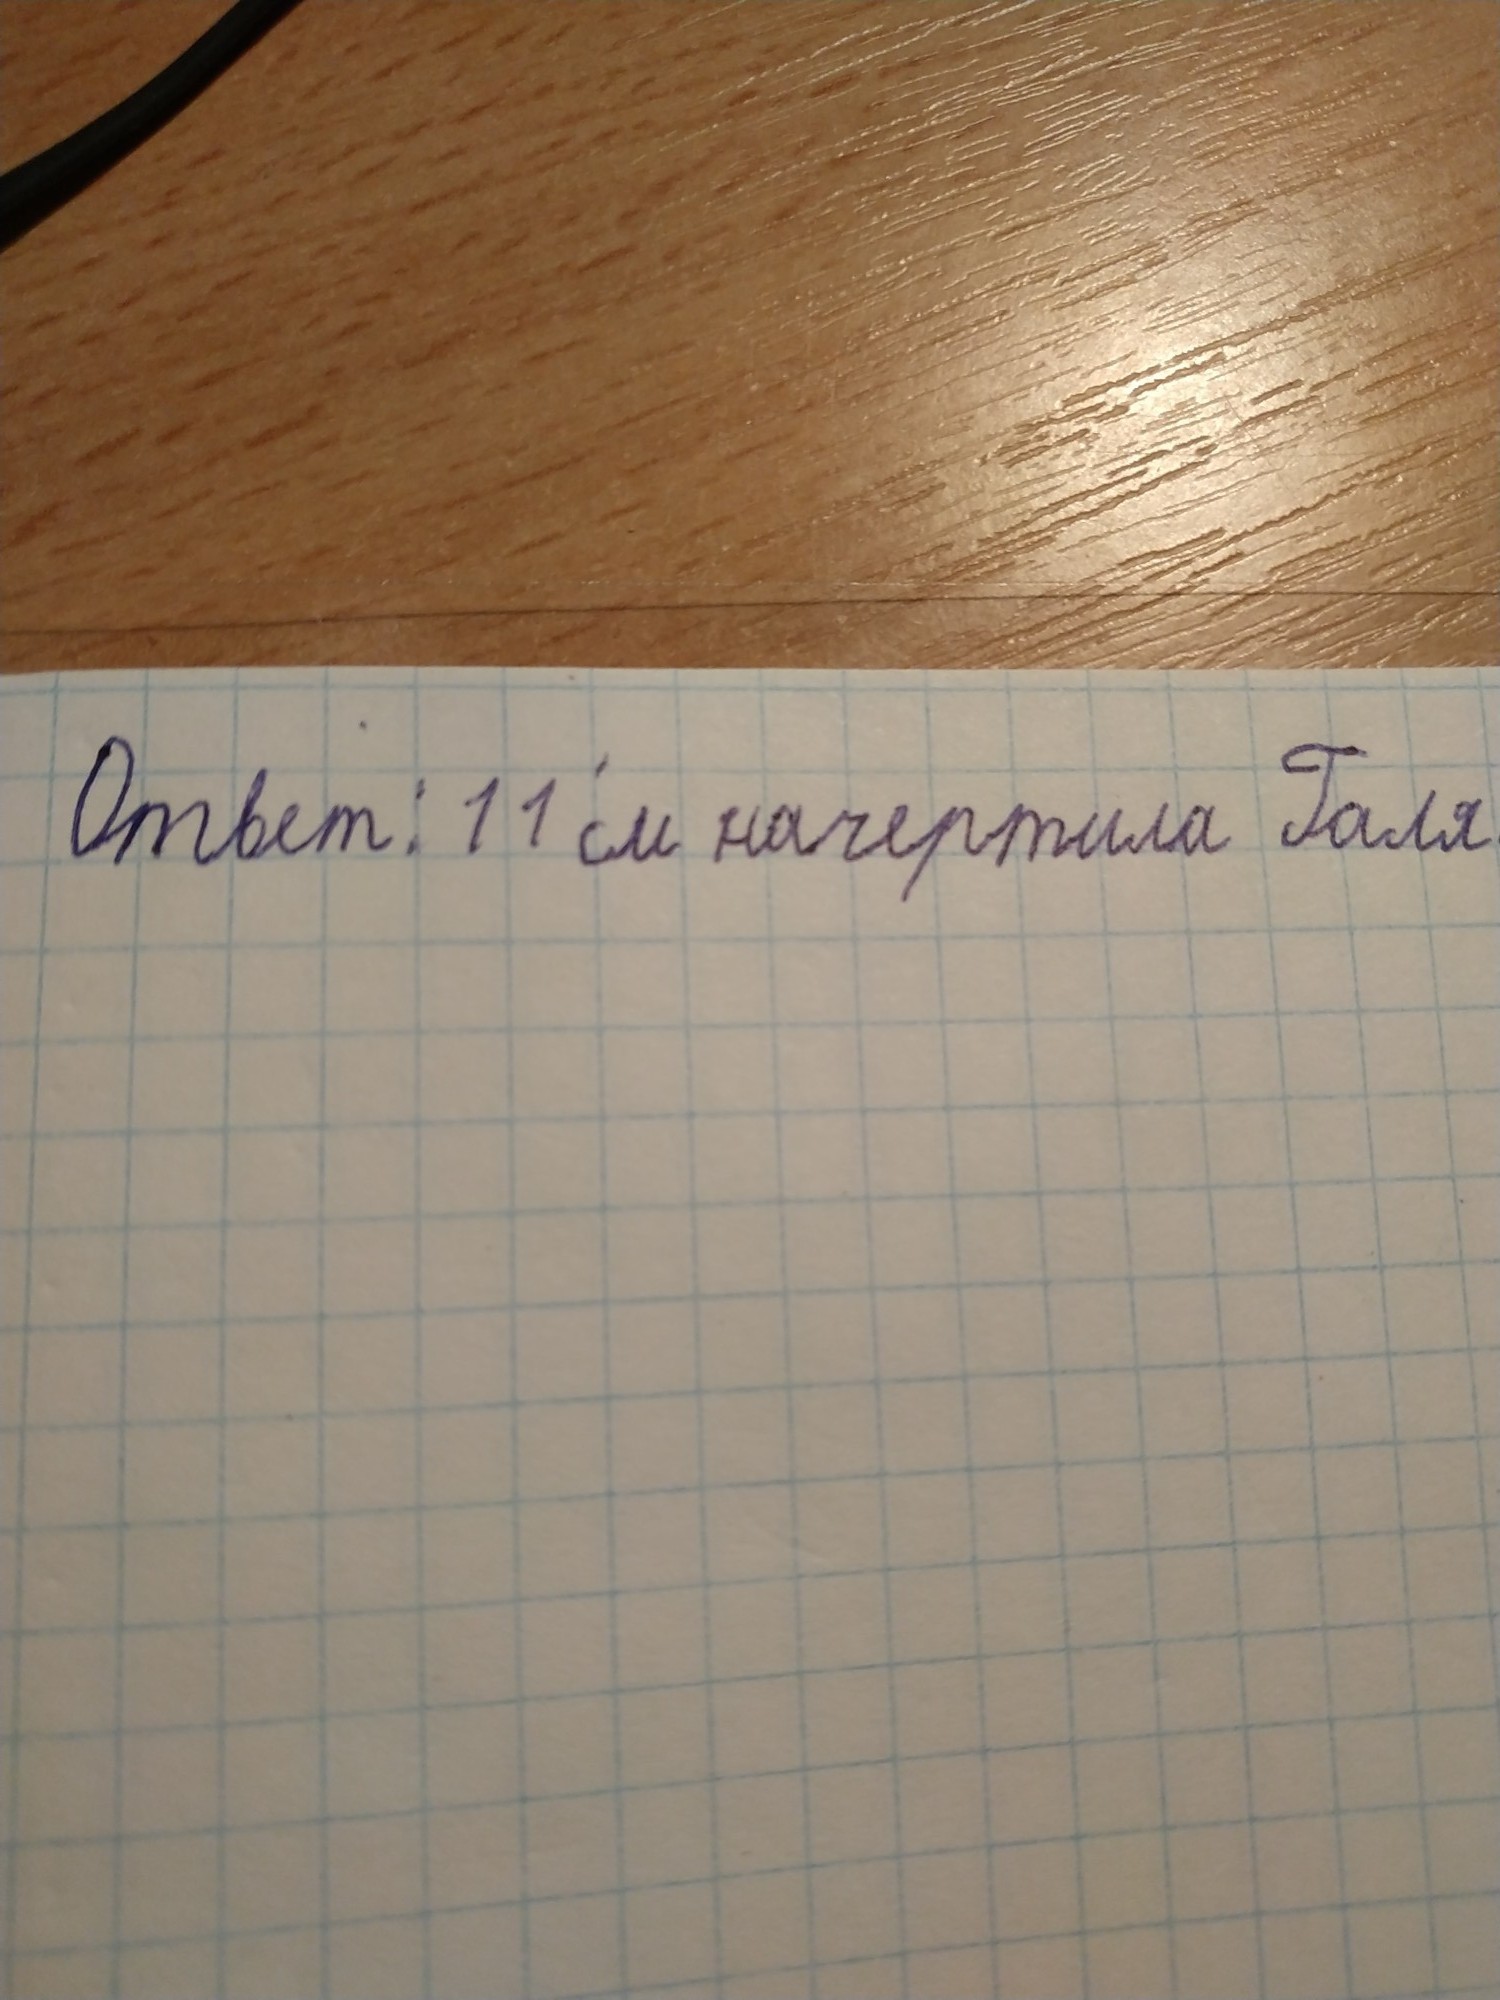 Ответ: 11 см начертила Галя.